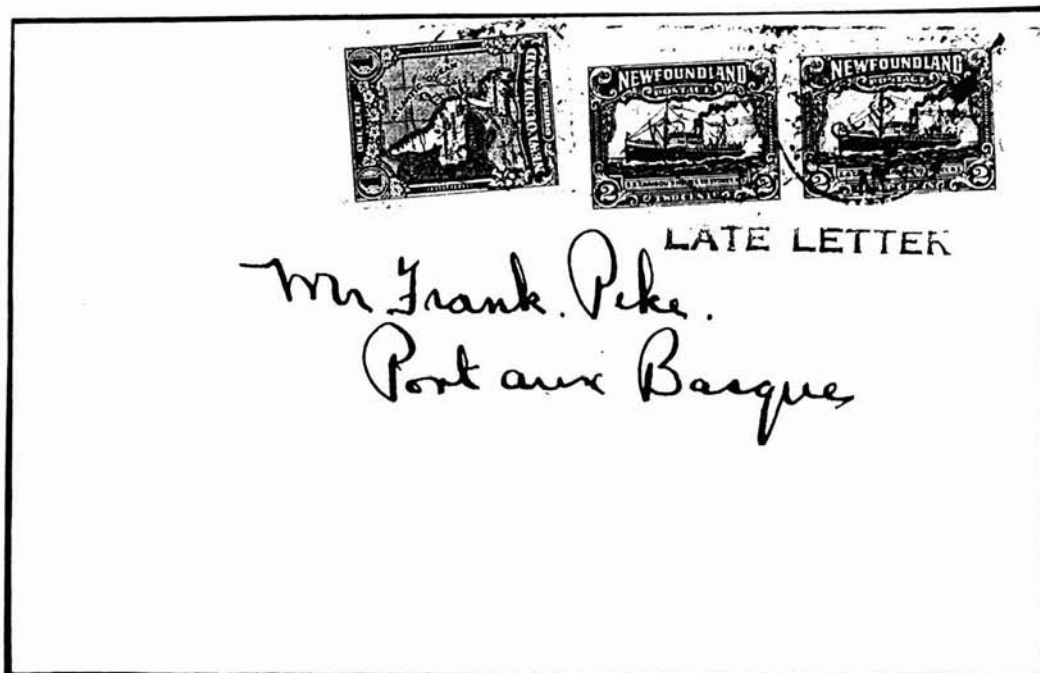 1 ONE CENT 1
NEWFOUNDLAND
NEWFOUNDLAND
POSTAGE
2 TWO CENTS 2
NEWFOUNDLAND
POSTAGE
2 2
LATE LETTER
Mr Frank. Pike.
Port aux Basques